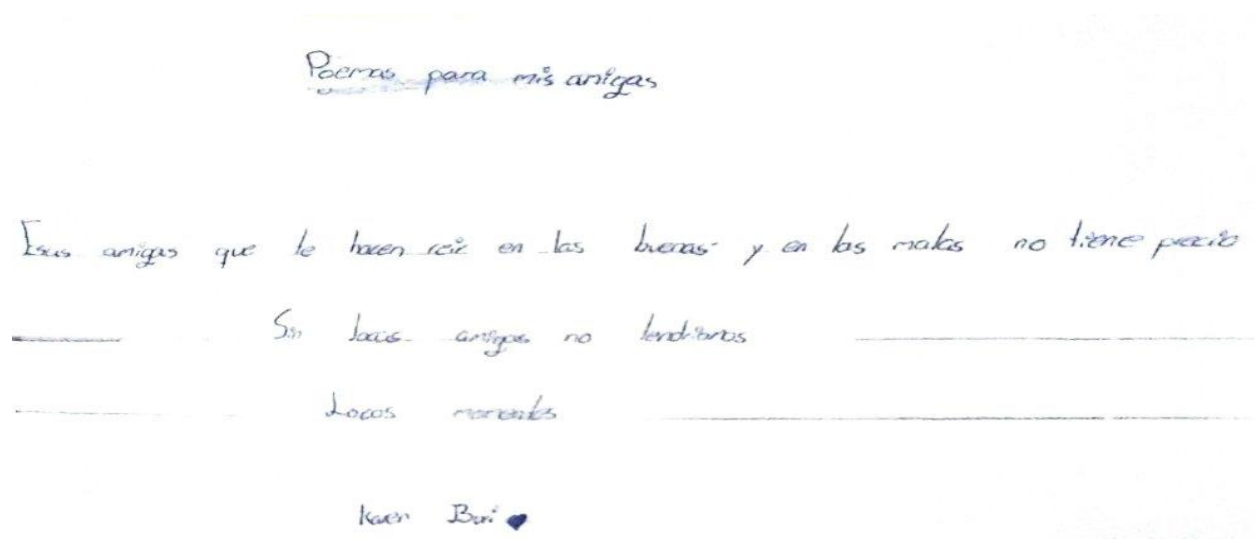 Poemas para mis amigas
Esas amigas que te hacen reir en las buenas y en las malas no tiene precio
Sin locas amigas no tendriamos
Locos momentos
Karen